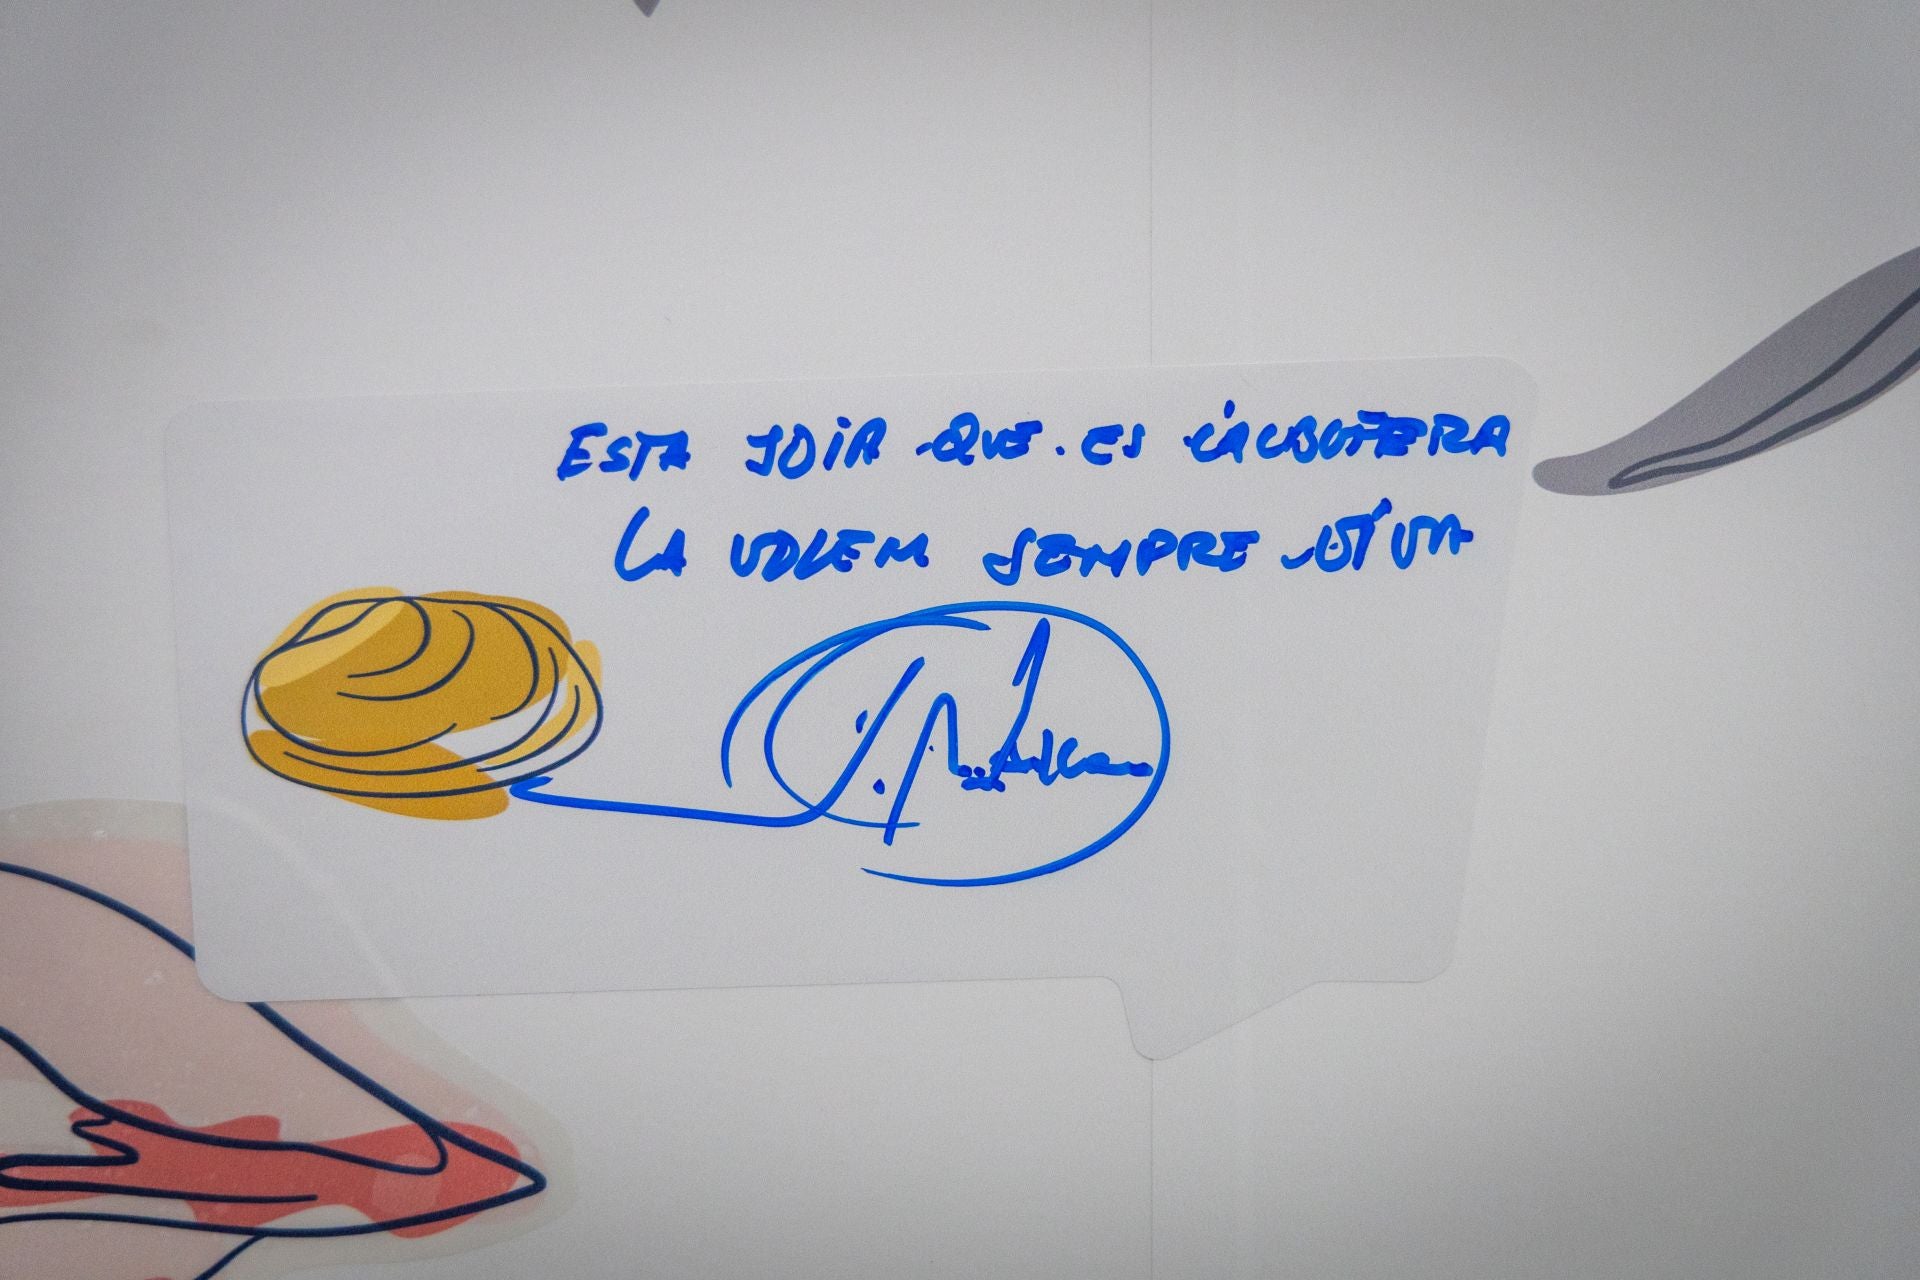 ESTA JOIA QUE ES L'ALBUFERA
LA VOLEM SEMPRE VIVA